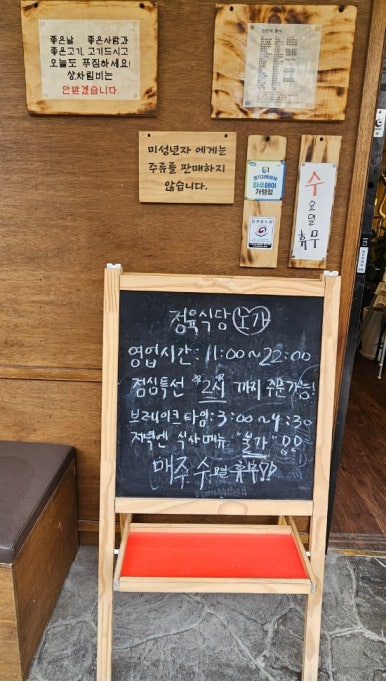 좋은날 좋은사람과
좋은고기, 고기드시고
오늘도 푸짐하세요!
상차림비는
안받겠습니다.
미성년자 에게는
주류를 판매하지
않습니다.
파주페이
가맹점
수
요일
휴무
정육식당 노가
영업시간: 11:00~22:00
점심특선 "2시" 까지 주문가능!
브레이크타임: 3:00~4:30
저녁엔 식사메뉴 "불가"
매주 수요일 휴무